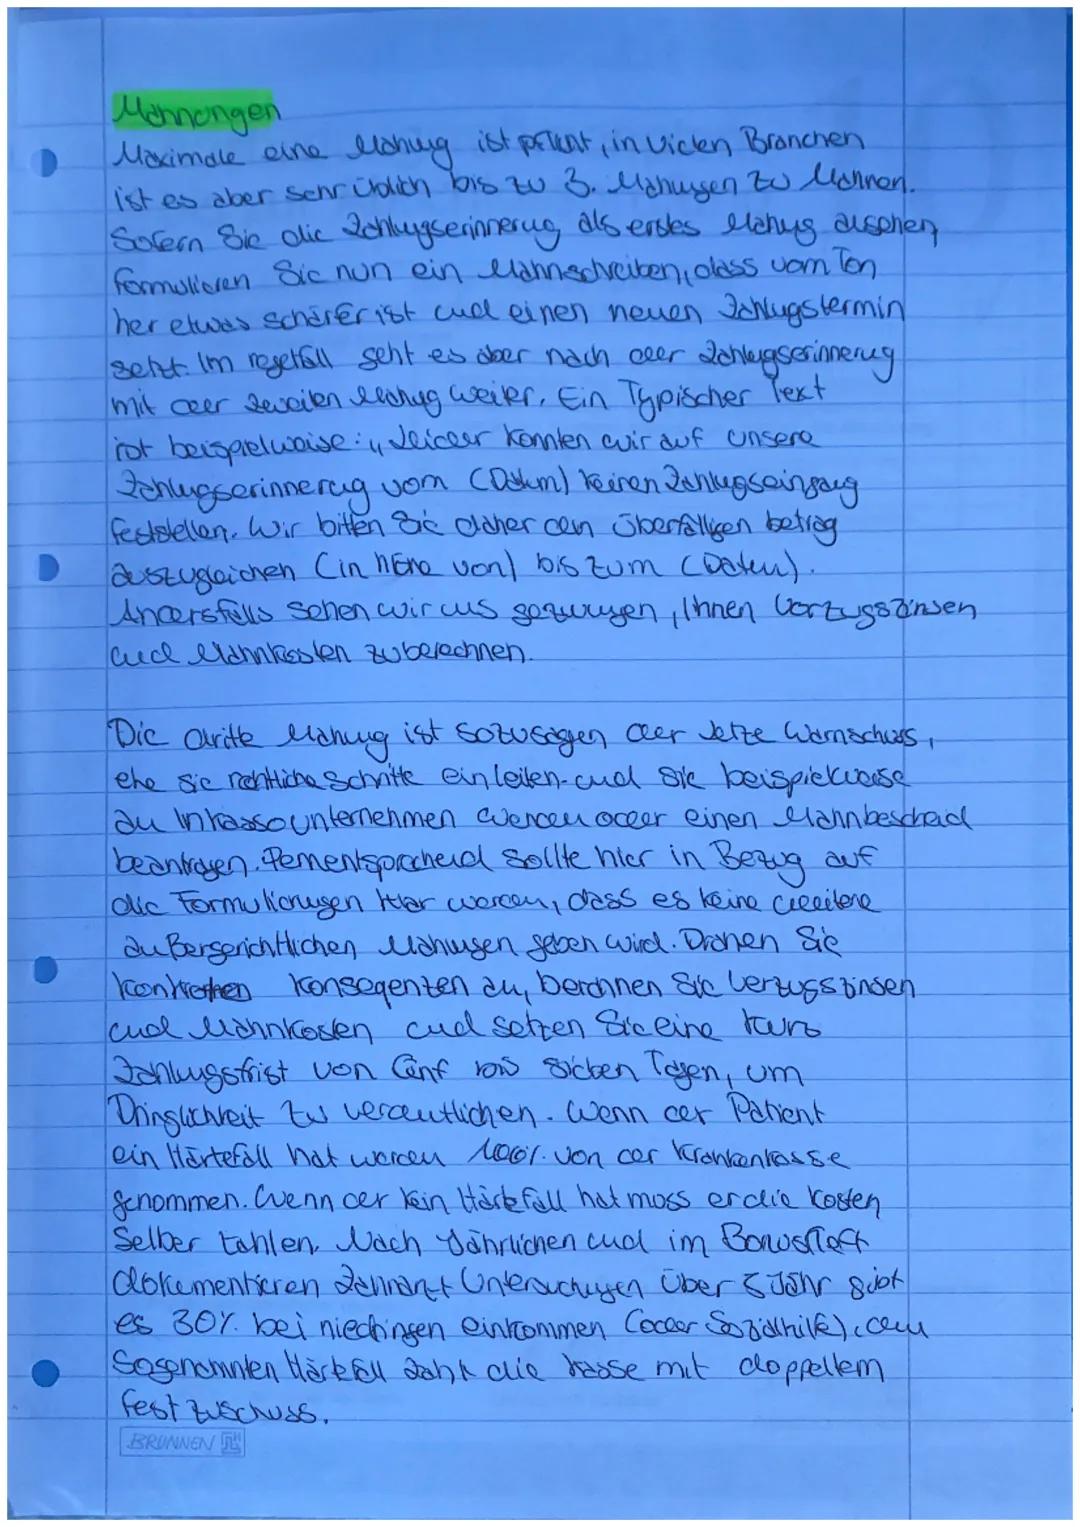 Mahnungen
Maximale eine Mahnung ist pflicht, in vielen Branchen
ist es aber sehr üblich bis zu 3. Mahnungen zu Mahnen.
Sofern Sie die Zahlungserinnerung als erstes Mahnung ansehen,
formulieren Sie nun ein Mahnschreiben, dass vom Ton
her etwas schärfer ist und einen neuen Zahlungstermin
setzt. Im regelfall geht es aber nach der Zahlungserinnerung
mit der zweiten Mahnung weiter. Ein Typischer Text
ist beispielweise: „Leider konnten wir auf unsere
Zahlungserinnerung vom (Datum) keinen Zahlungseingang
feststellen. Wir bitten Sie daher den Überfälligen betrag
auszugleichen (in Höhe von) bis zum (Datum).
Andersfalls sehen wir uns gezwungen, Ihnen Verzugszinsen
und Mahnkosten zuberechnen.
Die dritte Mahnung ist sozusagen der letze Warnschuss,
ehe sie rechtliche Schritte einleiten und sie beispielweise
an Inkassounternehmen wenden oder einen Mahnbescheid
beantragen. Dementsprechend sollte hier in Bezug auf
die Formulierungen klar werden, dass es keine weitere
außergerichtlichen Mahnungen geben wird. Drohen Sie
konkreten Konseqenten an, berchnen Sie Verzugszinsen
und Mahnkosten und setzen Sie eine kurz
Zahlungsfrist von fünf bis sieben Tagen, um
Dringlichkeit zu verdeutlichen. Wenn der Patient
ein Härtefall hat werden 100% von der Krankenkasse
genommen. Wenn der kein Härtefall hat muss er die Kosten
Selber zahlen. Nach Jährlichen und im Bonusheft
dokumentieren Zahnarzt Untersuchungen über 5 Jahr gibt
es 30% bei niedringen einkommen (oder Sozialhilfe), dem
Sogenannten Härtefall zahlt die kasse mit doppellem
Festzuschuss.
BRUNNEN